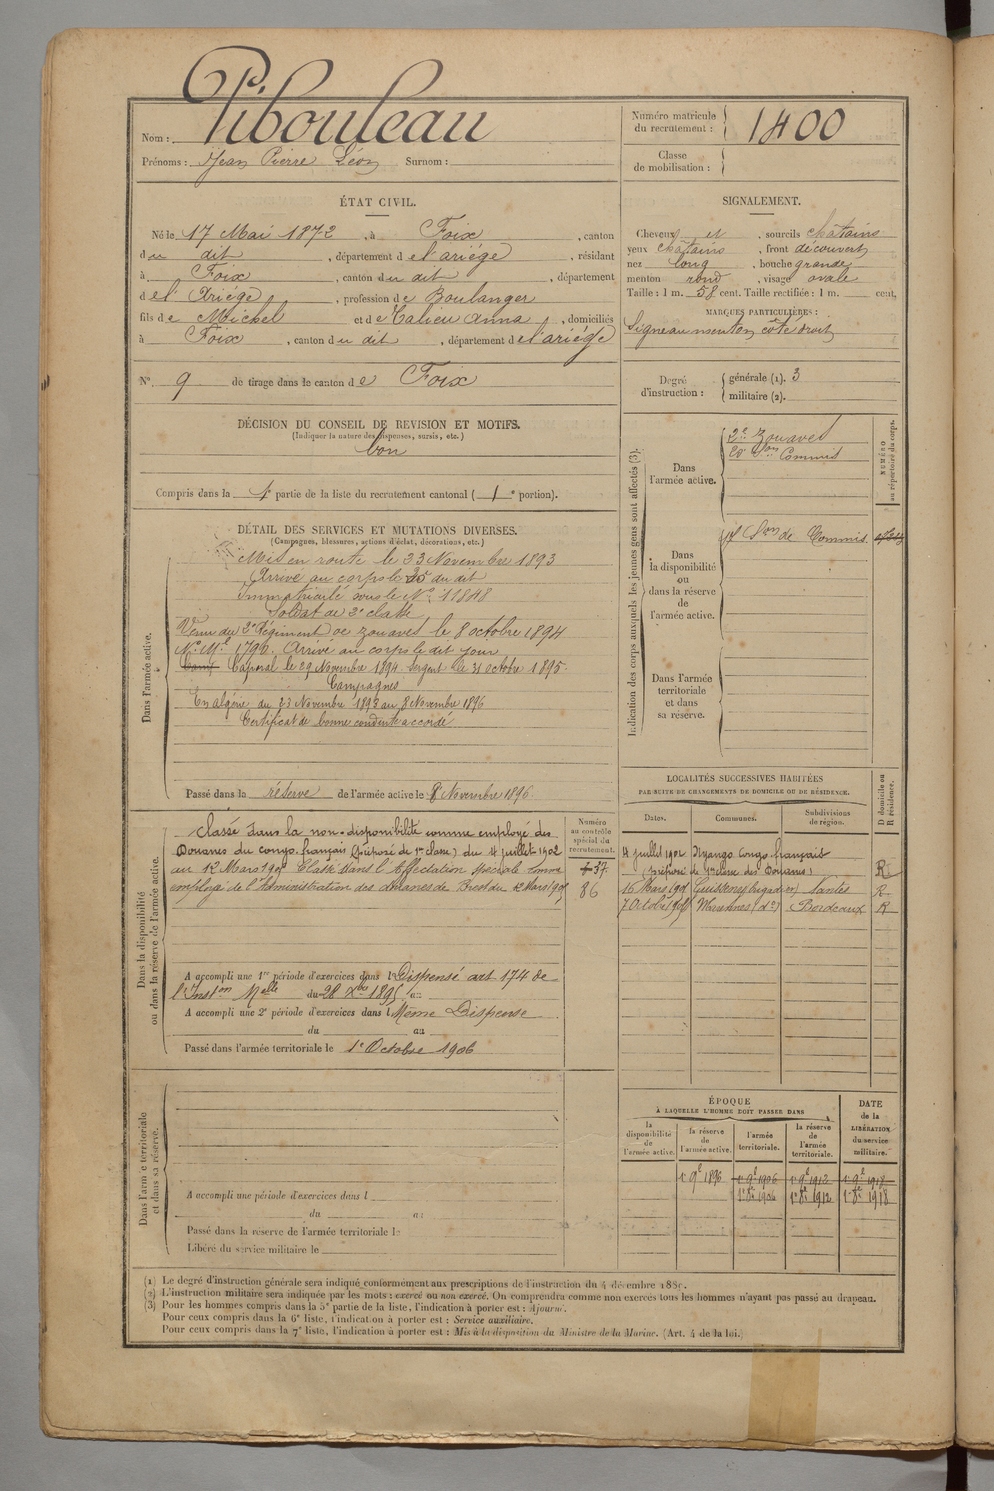 Nom : Pibouleau
Prénoms : Jean Pierre Léon Surnom :
Numéro matricule du recrutement : 1400
Classe de mobilisation :
ÉTAT CIVIL.
Né le 17 Mai 1872, à Foix, canton
du dit, département de l'ariége, résidant
à Foix, canton du dit, département
de l'Ariége, profession de Boulanger
fils de Michel et de Talieu Anna, domiciliés
à Foix, canton du dit, département de l'ariége
N° 9 de tirage dans le canton de Foix
SIGNALEMENT.
Cheveux et, sourcils chatains
yeux chatains, front découvert
nez long, bouche grande
menton rond, visage ovale
Taille : 1 m. 58 cent. Taille rectifiée : 1 m. cent.
MARQUES PARTICULIÈRES :
Signe au menton côté droit
Degré d'instruction :
générale (1). 3
militaire (2).
DÉCISION DU CONSEIL DE REVISION ET MOTIFS.
(Indiquer la nature des dispenses, sursis, etc.)
bon
Compris dans la 1e partie de la liste du recrutement cantonal (1e portion).
DÉTAIL DES SERVICES ET MUTATIONS DIVERSES.
(Campagnes, blessures, actions d'éclat, décorations, etc.)
Dans l'armée active.
Mis en route le 23 Novembre 1893
Arrivé au corps le 25 du dit
Immatriculé sous le N° 11848
Soldat de 2e classe
Venu du 2e Régiment de zouaves le 8 octobre 1894
N° Mle 1790. Arrivé au corps le dit jour
Caporal le 29 Novembre 1894. Sergent le 31 octobre 1895.
Campagnes
En algérie du 23 Novembre 1893 au 8 Novembre 1896
Certificat de bonne conduite accordé
Passé dans la réserve de l'armée active le 8 Novembre 1896
Indication des corps auxquels les jeunes gens sont affectés (3).
NUMÉRO au répertoire du corps.
Dans l'armée active.
2e Zouaves
20 Son Commis
Dans la disponibilité ou dans la réserve de l'armée active.
Son de Commis
Dans l'armée territoriale et dans sa réserve.
LOCALITÉS SUCCESSIVES HABITÉES
PAR SUITE DE CHANGEMENTS DE DOMICILE OU DE RÉSIDENCE.
D domicile ou R résidence.
Dates. Communes. Subdivisions de région.
4 juillet 1902 Nyango Congo français
(préposé de 1re classe des Douanes) R
16 Mars 190 Guissény (brigadier) Nantes R
7 Octobre 190 Marennes (do) Bordeaux R
Dans la disponibilité ou dans la réserve de l'armée active.
Numéro au contrôle spécial du recrutement.
Classé dans la non-disponibilité comme employé des
Douanes du congo français (préposé de 1re classe) du 4 juillet 1902
au 12 Mars 190 Classé dans l'Affectation spéciale comme
employé de l'Administration des douanes de Brest du 12 Mars 190
37
86
A accompli une 1re période d'exercices dans l Dispensé art 174 de
l'Inston Melle du 28 Xbre 1895 au
A accompli une 2e période d'exercices dans l Même Dispense
du au
Passé dans l'armée territoriale le 1er Octobre 1906
Dans l'armée territoriale et dans sa réserve.
A accompli une période d'exercices dans l
du au
Passé dans la réserve de l'armée territoriale le
Libéré du service militaire le
ÉPOQUE
À LAQUELLE L'HOMME DOIT PASSER DANS
DATE de la LIBÉRATION du service militaire.
la disponibilité de l'armée active. la réserve de l'armée active. l'armée territoriale. la réserve de l'armée territoriale.
1er 9e 1896 1er 9e 1906 1er 9e 1912 1er 9e 1918
1er 8e 1906 1er 8e 1912 1er 8e 1918
(1) Le degré d'instruction générale sera indiqué conformément aux prescriptions de l'instruction du 4 décembre 1889.
(2) L'instruction militaire sera indiquée par les mots : exercé ou non exercé. On comprendra comme non exercés tous les hommes n'ayant pas passé au drapeau.
(3) Pour les hommes compris dans la 5e partie de la liste, l'indication à porter est : Ajourné.
Pour ceux compris dans la 6e liste, l'indication à porter est : Service auxiliaire.
Pour ceux compris dans la 7e liste, l'indication à porter est : Mis à la disposition du Ministre de la Marine. (Art. 4 de la loi.)